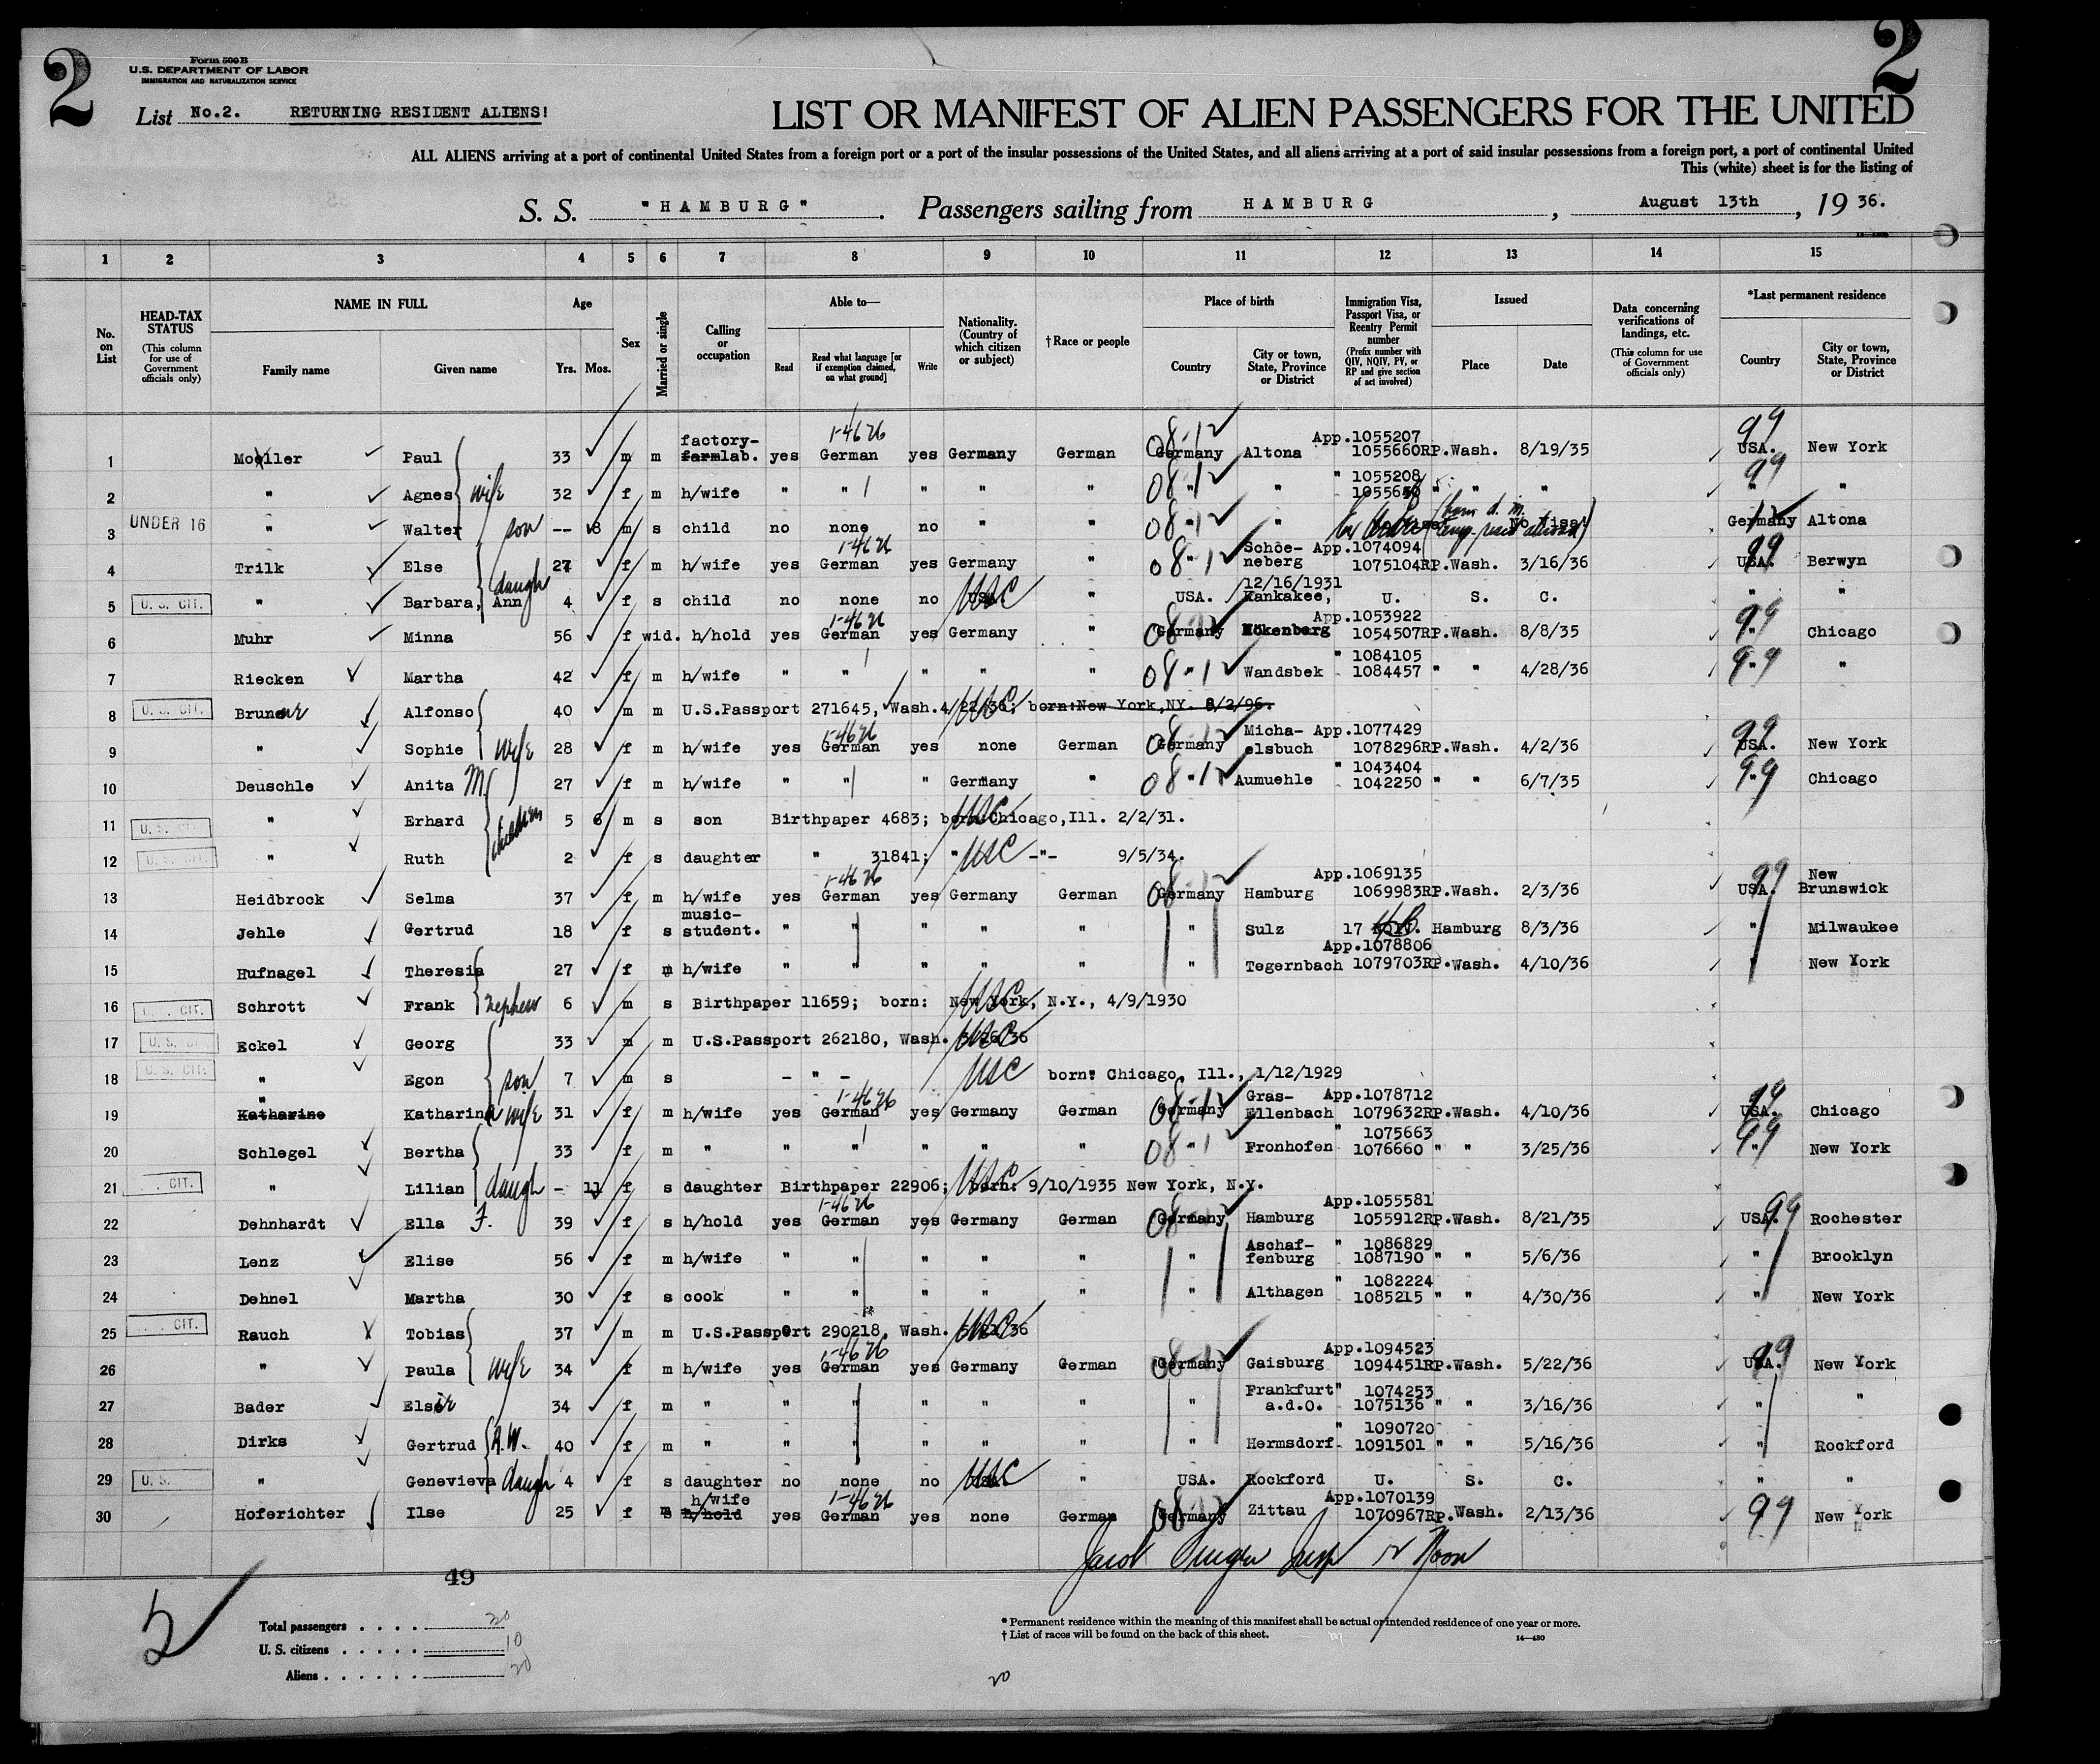 2
2
Form 500 B
U.S. DEPARTMENT OF LABOR
IMMIGRATION AND NATURALIZATION SERVICE
List No.2. RETURNING RESIDENT ALIENS!
LIST OR MANIFEST OF ALIEN PASSENGERS FOR THE UNITED
ALL ALIENS arriving at a port of continental United States from a foreign port or a port of the insular possessions of the United States, and all aliens arriving at a port of said insular possessions from a foreign port, a port of continental United
This (white) sheet is for the listing of
S. S. "HAMBURG". Passengers sailing from HAMBURG, August 13th, 19 36.
1 2 3 4 5 6 7 8 9 10 11 12 13 14 15
No. on List
HEAD-TAX STATUS (This column for use of Government officials only)
NAME IN FULL Family name Given name
Age Yrs. Mos.
Sex
Married or single
Calling or occupation
Able to— Read Read what language [or if exemption claimed, on what ground] Write
Nationality. (Country of which citizen or subject)
†Race or people
Place of birth Country City or town, State, Province or District
Immigration Visa, Passport Visa, or Reentry Permit number (Prefix number with QIV, NQIV, PV, or RP and give section of act involved)
Issued Place Date
Data concerning verifications of landings, etc. (This column for use of Government officials only)
*Last permanent residence Country City or town, State, Province or District
1 Moeller Paul 33 m m factory- farmlab. yes 1-4626 German yes Germany German 08-12 Germany Altona App.1055207 1055660RP. Wash. 8/19/35 99 USA. New York
2 " Agnes wife 32 f m h/wife " " " " " 08-12 " " " 1055208 " " " 99 " "
3 UNDER 16 " Walter son -- m s child no none no " " 08-12 " " No Visa! Germany Altona
4 Trilk Else 27 f m h/wife yes 1-4626 German yes Germany " 08-12 " Schöe- neberg App.1074094 1075104RP. Wash. 3/16/36 99 USA. Berwyn
5 U. S. CIT. " Barbara, Ann daugh 4 f s child no none no USC " USA. 12/16/1931 Kankakee, U. S. C. " "
6 Muhr Minna 56 f wid. h/hold yes 1-4626 German yes Germany " 08-12 Germany App.1053922 1054507RP. Wash. 8/8/35 99 " Chicago
7 Riecken Martha 42 f m h/wife " " " " " 08-12 " Wandsbek " 1084105 1084457 " " 4/28/36 99 " "
8 U. S. CIT. Alfonso 40 m m U.S.Passport 271645, Wash. USC born:New York,NY. 8/2/96.
9 " Sophie wife 28 f m h/wife yes 1-4626 German yes none German 08-12 Germany Micha- elsbuch App.1077429 1078296RP. Wash. 4/2/36 99 USA. New York
10 Deuschle Anita M. 27 f m h/wife " " " Germany " 08-12 " Aumuehle " 1043404 1042250 " " 6/7/35 99 " Chicago
11 U. S. CIT. " Erhard children 5 6 m s son Birthpaper 4683; USC born:Chicago,Ill. 2/2/31.
12 U. S. CIT. " Ruth 2 f s daughter " 31841; " USC -"- 9/5/34.
13 Heidbrock Selma 37 f m h/wife yes 1-4626 German yes Germany German 08-12 Germany Hamburg App.1069135 1069983RP. Wash. 2/3/36 99 USA. New Brunswick
14 Jehle Gertrud 18 f s music- student. " " " " " " Sulz 17 Hamburg 8/3/36 " Milwaukee
15 Hufnagel Theresia 27 f m h/wife " " " " " " Tegernbach App.1078806 1079703RP. Wash. 4/10/36 " New York
16 CIT. Schrott Frank nephew 6 m s Birthpaper 11659; born: New York, N.Y., 4/9/1930 USC
17 U. S. Eckel Georg 33 m m U.S.Passport 262180, Wash. USC
18 U. S. CIT. " Egon son 7 m s - " - USC born: Chicago, Ill., 1/12/1929
19 " Katharine Katharina wife 31 f m h/wife yes 1-4626 German yes Germany German 08-12 Germany Gras- Ellenbach App.1078712 1079632RP. Wash. 4/10/36 99 USA. Chicago
20 Schlegel Bertha 33 f m " " " " " " 08-12 " Fronhofen " 1075663 1076660 " " 3/25/36 99 " New York
21 CIT. " Lilian daugh - 11 f s daughter Birthpaper 22906; USC born: 9/10/1935 New York, N.Y.
22 Dehnhardt Ella F. 39 f s h/hold yes 1-4626 German yes Germany German 08 Germany Hamburg App.1055581 1055912RP. Wash. 8/21/35 99 USA. Rochester
23 Lenz Elise 56 f m h/wife " " " " " " Aschaf- fenburg " 1086829 1087190 " " 5/6/36 " Brooklyn
24 Dehnel Martha 30 f s cook " " " " " " Althagen " 1082224 1085215 " " 4/30/36 " New York
25 CIT. Rauch Tobias 37 m m U.S.Passport 290218, Wash. USC
26 " Paula wife 34 f m h/wife yes 1-4626 German yes Germany German 08-12 Germany Gaisburg App.1094523 1094451RP. Wash. 5/22/36 99 USA. New York
27 Bader 34 f m " " " " " " " Frankfurt a.d.O. " 1074253 1075136 " " 3/16/36 " "
28 Dirks Gertrud 40 f m " " " " " " " Hermsdorf " 1090720 1091501 " " 5/16/36 " Rockford
29 U. S. " Genevieva daugh 4 f s daughter no none no USC " USA. Rockford U. S. C. " "
30 Hoferichter Ilse 25 f m h/wife h/hold yes 1-4626 German yes none German 08-12 Germany Zittau App.1070139 1070967RP. Wash. 2/13/36 99 New York
49
Total passengers . . . .
U. S. citizens . . . . . 10
Aliens . . . . . . 20
* Permanent residence within the meaning of this manifest shall be actual or intended residence of one year or more.
† List of races will be found on the back of this sheet.
14—430
20